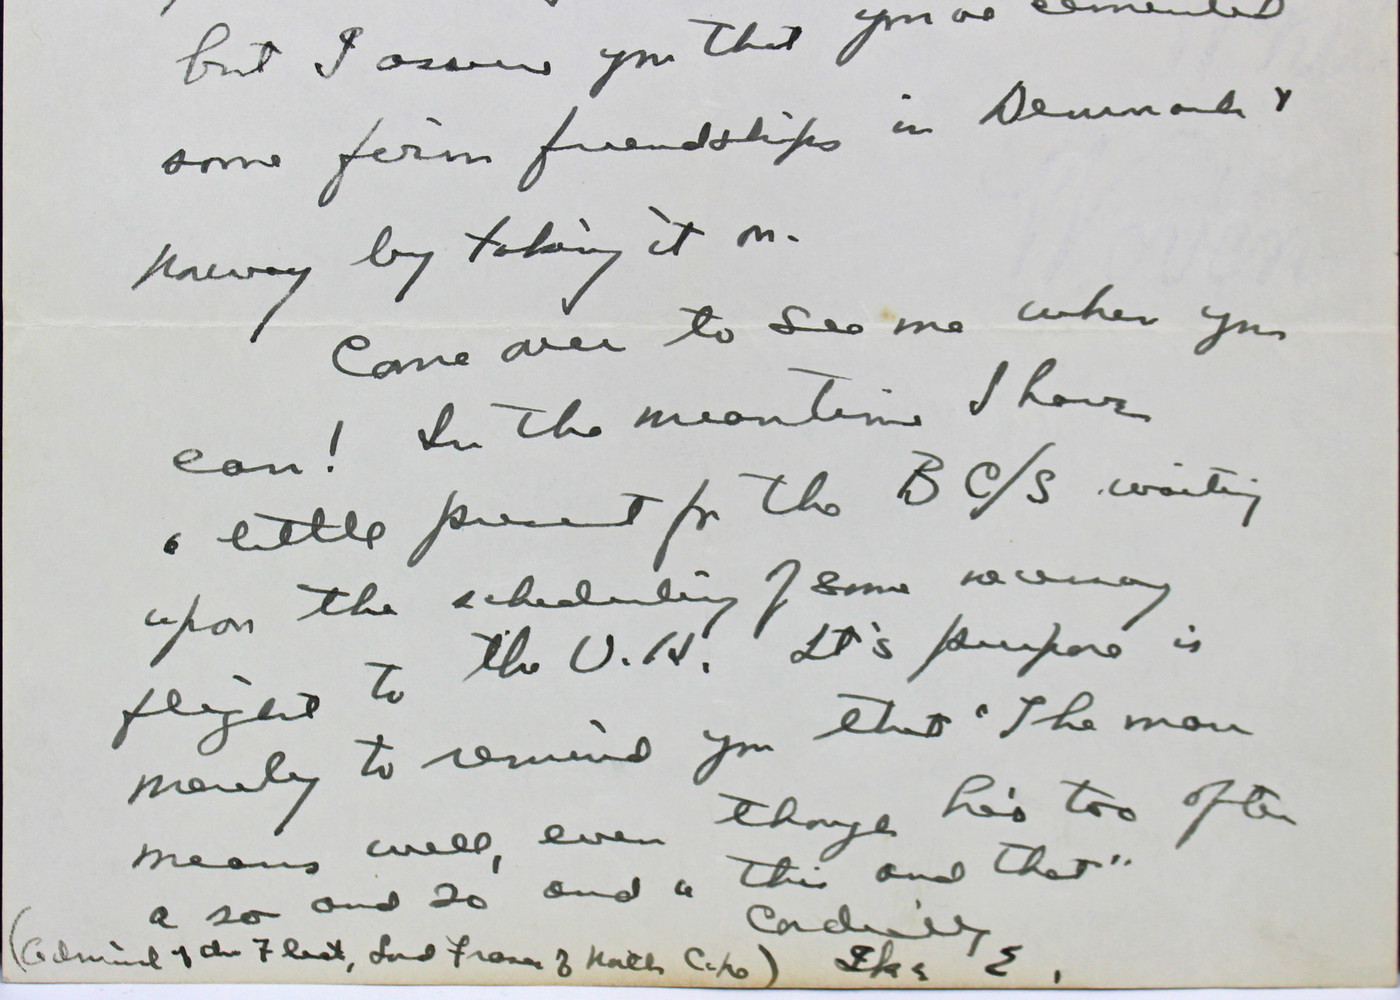 but I assure you that you've cemented
some firm friendships in Denmark &
Norway by taking it on.
Come over to see me when you
can! In the meantime I have
a little present for the B C/S waiting
upon the scheduling of some necessary
flight to the U.K. It's purpose is
merely to remind you that "The man
means well, even though he's too often
a so and so and a "this and that"
Cordially
Ike E.
(Admiral of the Fleet, Lord Fraser of North Cape)